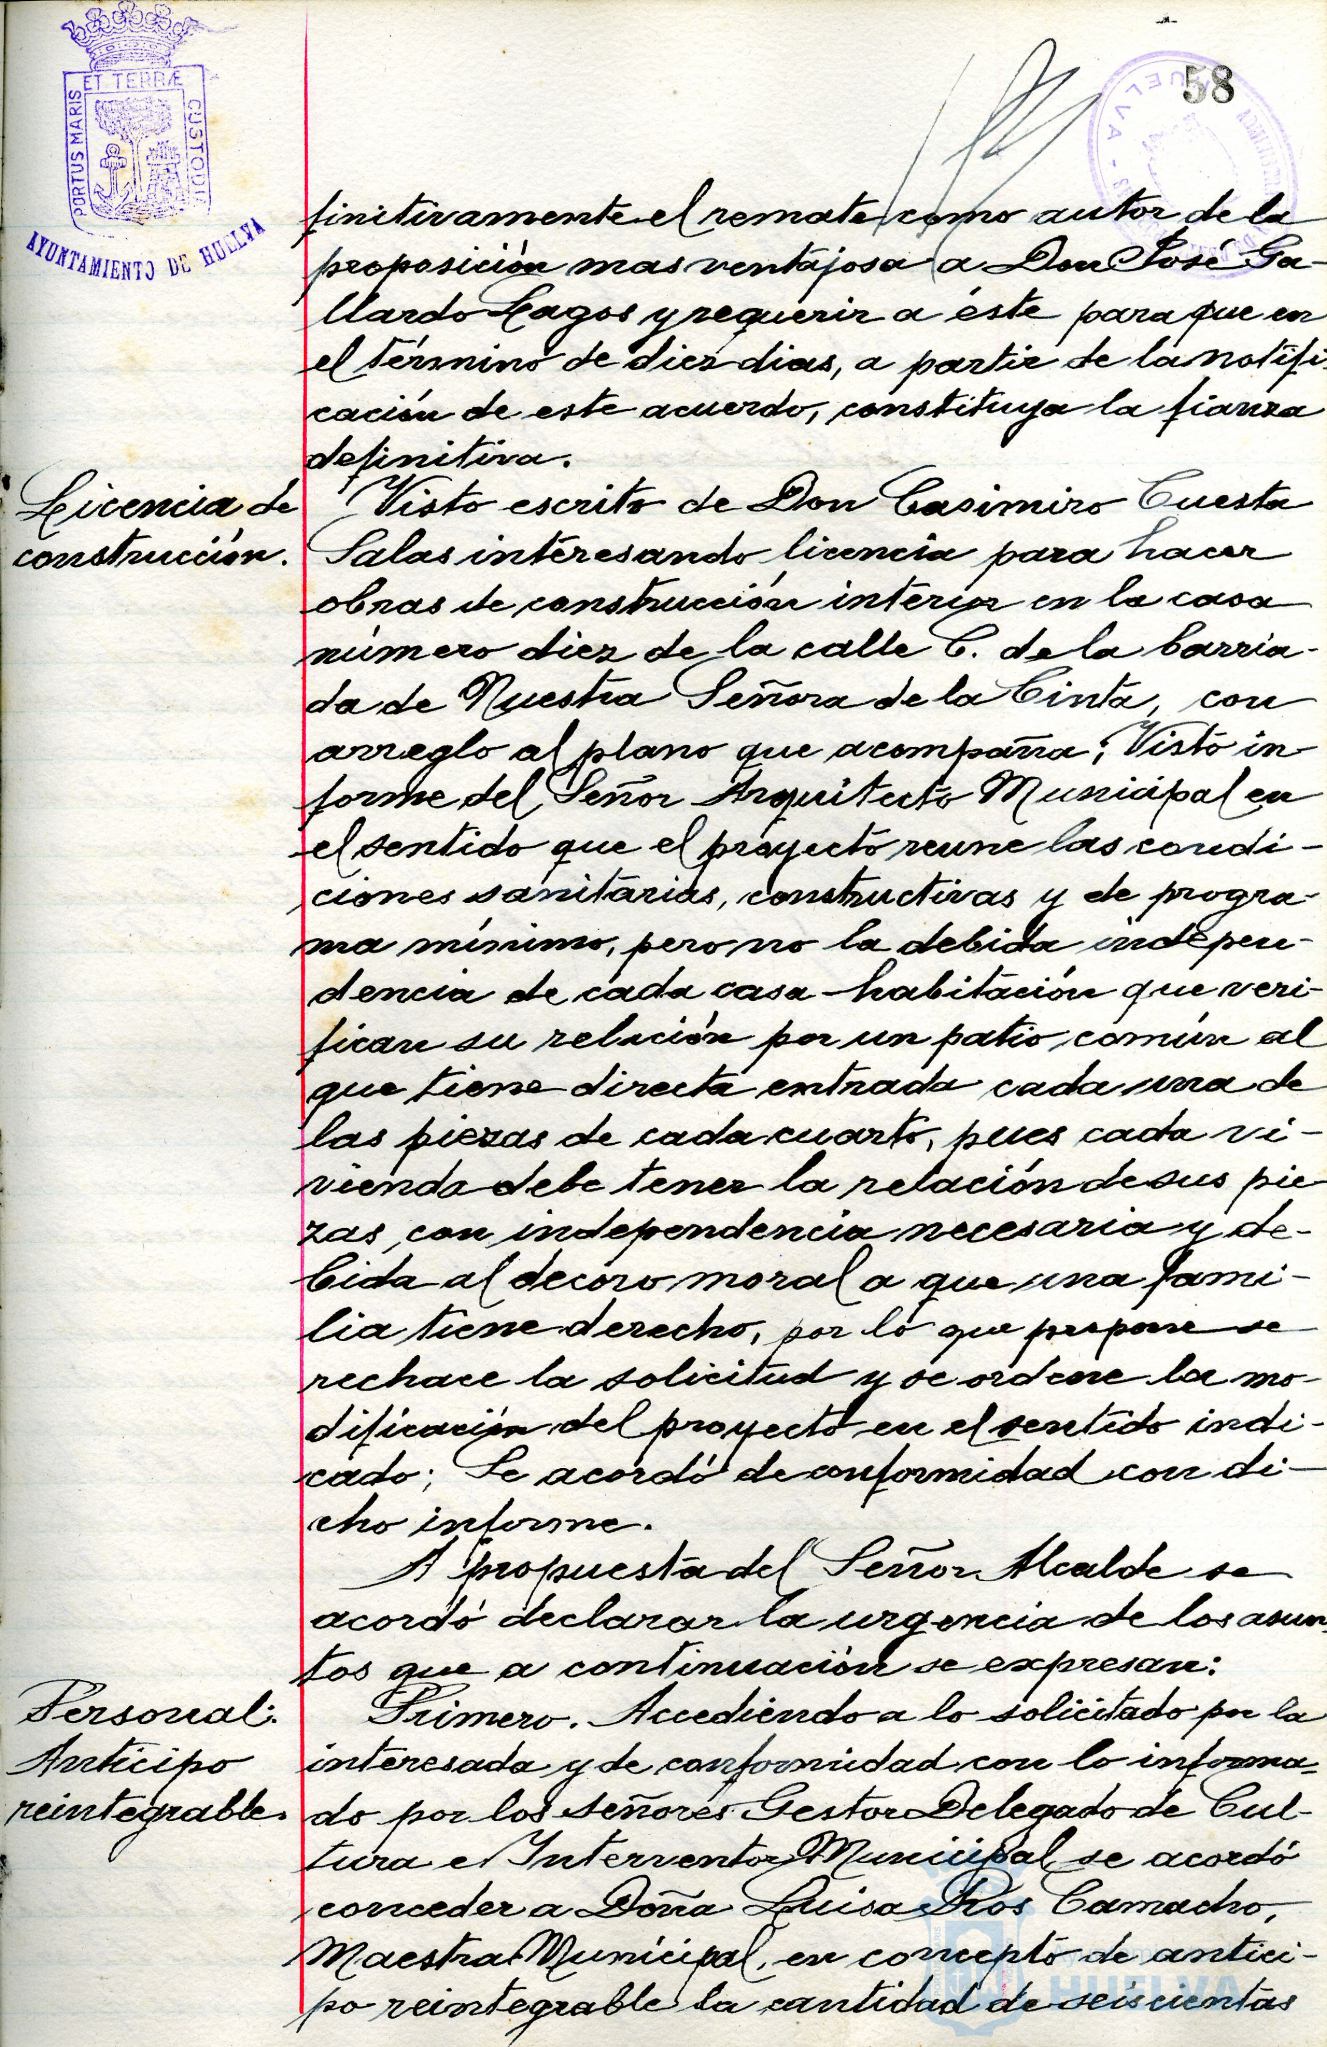 58
PORTUS MARIS ET TERRÆ CUSTODIA
AYUNTAMIENTO DE HUELVA
HUELVA
finitivamente el remate como autor de la
proposición mas ventajosa a Don José Ga-
llardo Lagos y requerir a éste para que en
el término de diez dias, a partir de la notifi-
cación de este acuerdo, constituya la fianza
definitiva.
Licencia de
construcción.
Visto escrito de Don Casimiro Cuesta
Salas interesando licencia para hacer
obras de construcción interior en la casa
número diez de la calle C. de la barria-
da de Nuestra Señora de la Cinta, con
arreglo al plano que acompaña; Visto in
forme del Señor Arquitecto Municipal en
el sentido que el proyecto reune las condi-
ciones sanitarias, constructivas y de progra-
ma mínimo, pero no la debida indepen-
dencia de cada casa-habitación que veri-
fican su relación por un patio común al
que tiene directa entrada cada una de
las piezas de cada cuarto, pues cada vi-
vienda debe tener la relación de sus pie
zas, con independencia necesaria y de-
bida al decoro moral a que una fami-
lia tiene derecho, por lo que propone se
rechace la solicitud y se ordene la mo-
dificación del proyecto en el sentido indi-
cado; Se acordó de conformidad con di-
cho informe.
A propuesta del Señor Alcalde se
acordó declarar la urgencia de los asun-
tos que a continuación se expresan:
Personal:
Anticipo
reintegrable.
Primero. Accediendo a lo solicitado por la
interesada y de conformidad con lo informa-
do por los Señores Gestor Delegado de Cul-
tura e Interventor Municipal se acordó
conceder a Doña Luisa Ros Camacho,
Maestra Municipal, en concepto de antici-
po reintegrable la cantidad de seiscientas
HUELVA